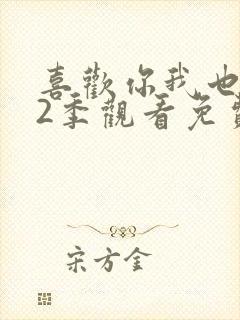 喜歡你我也
2季觀看免費
宋方金